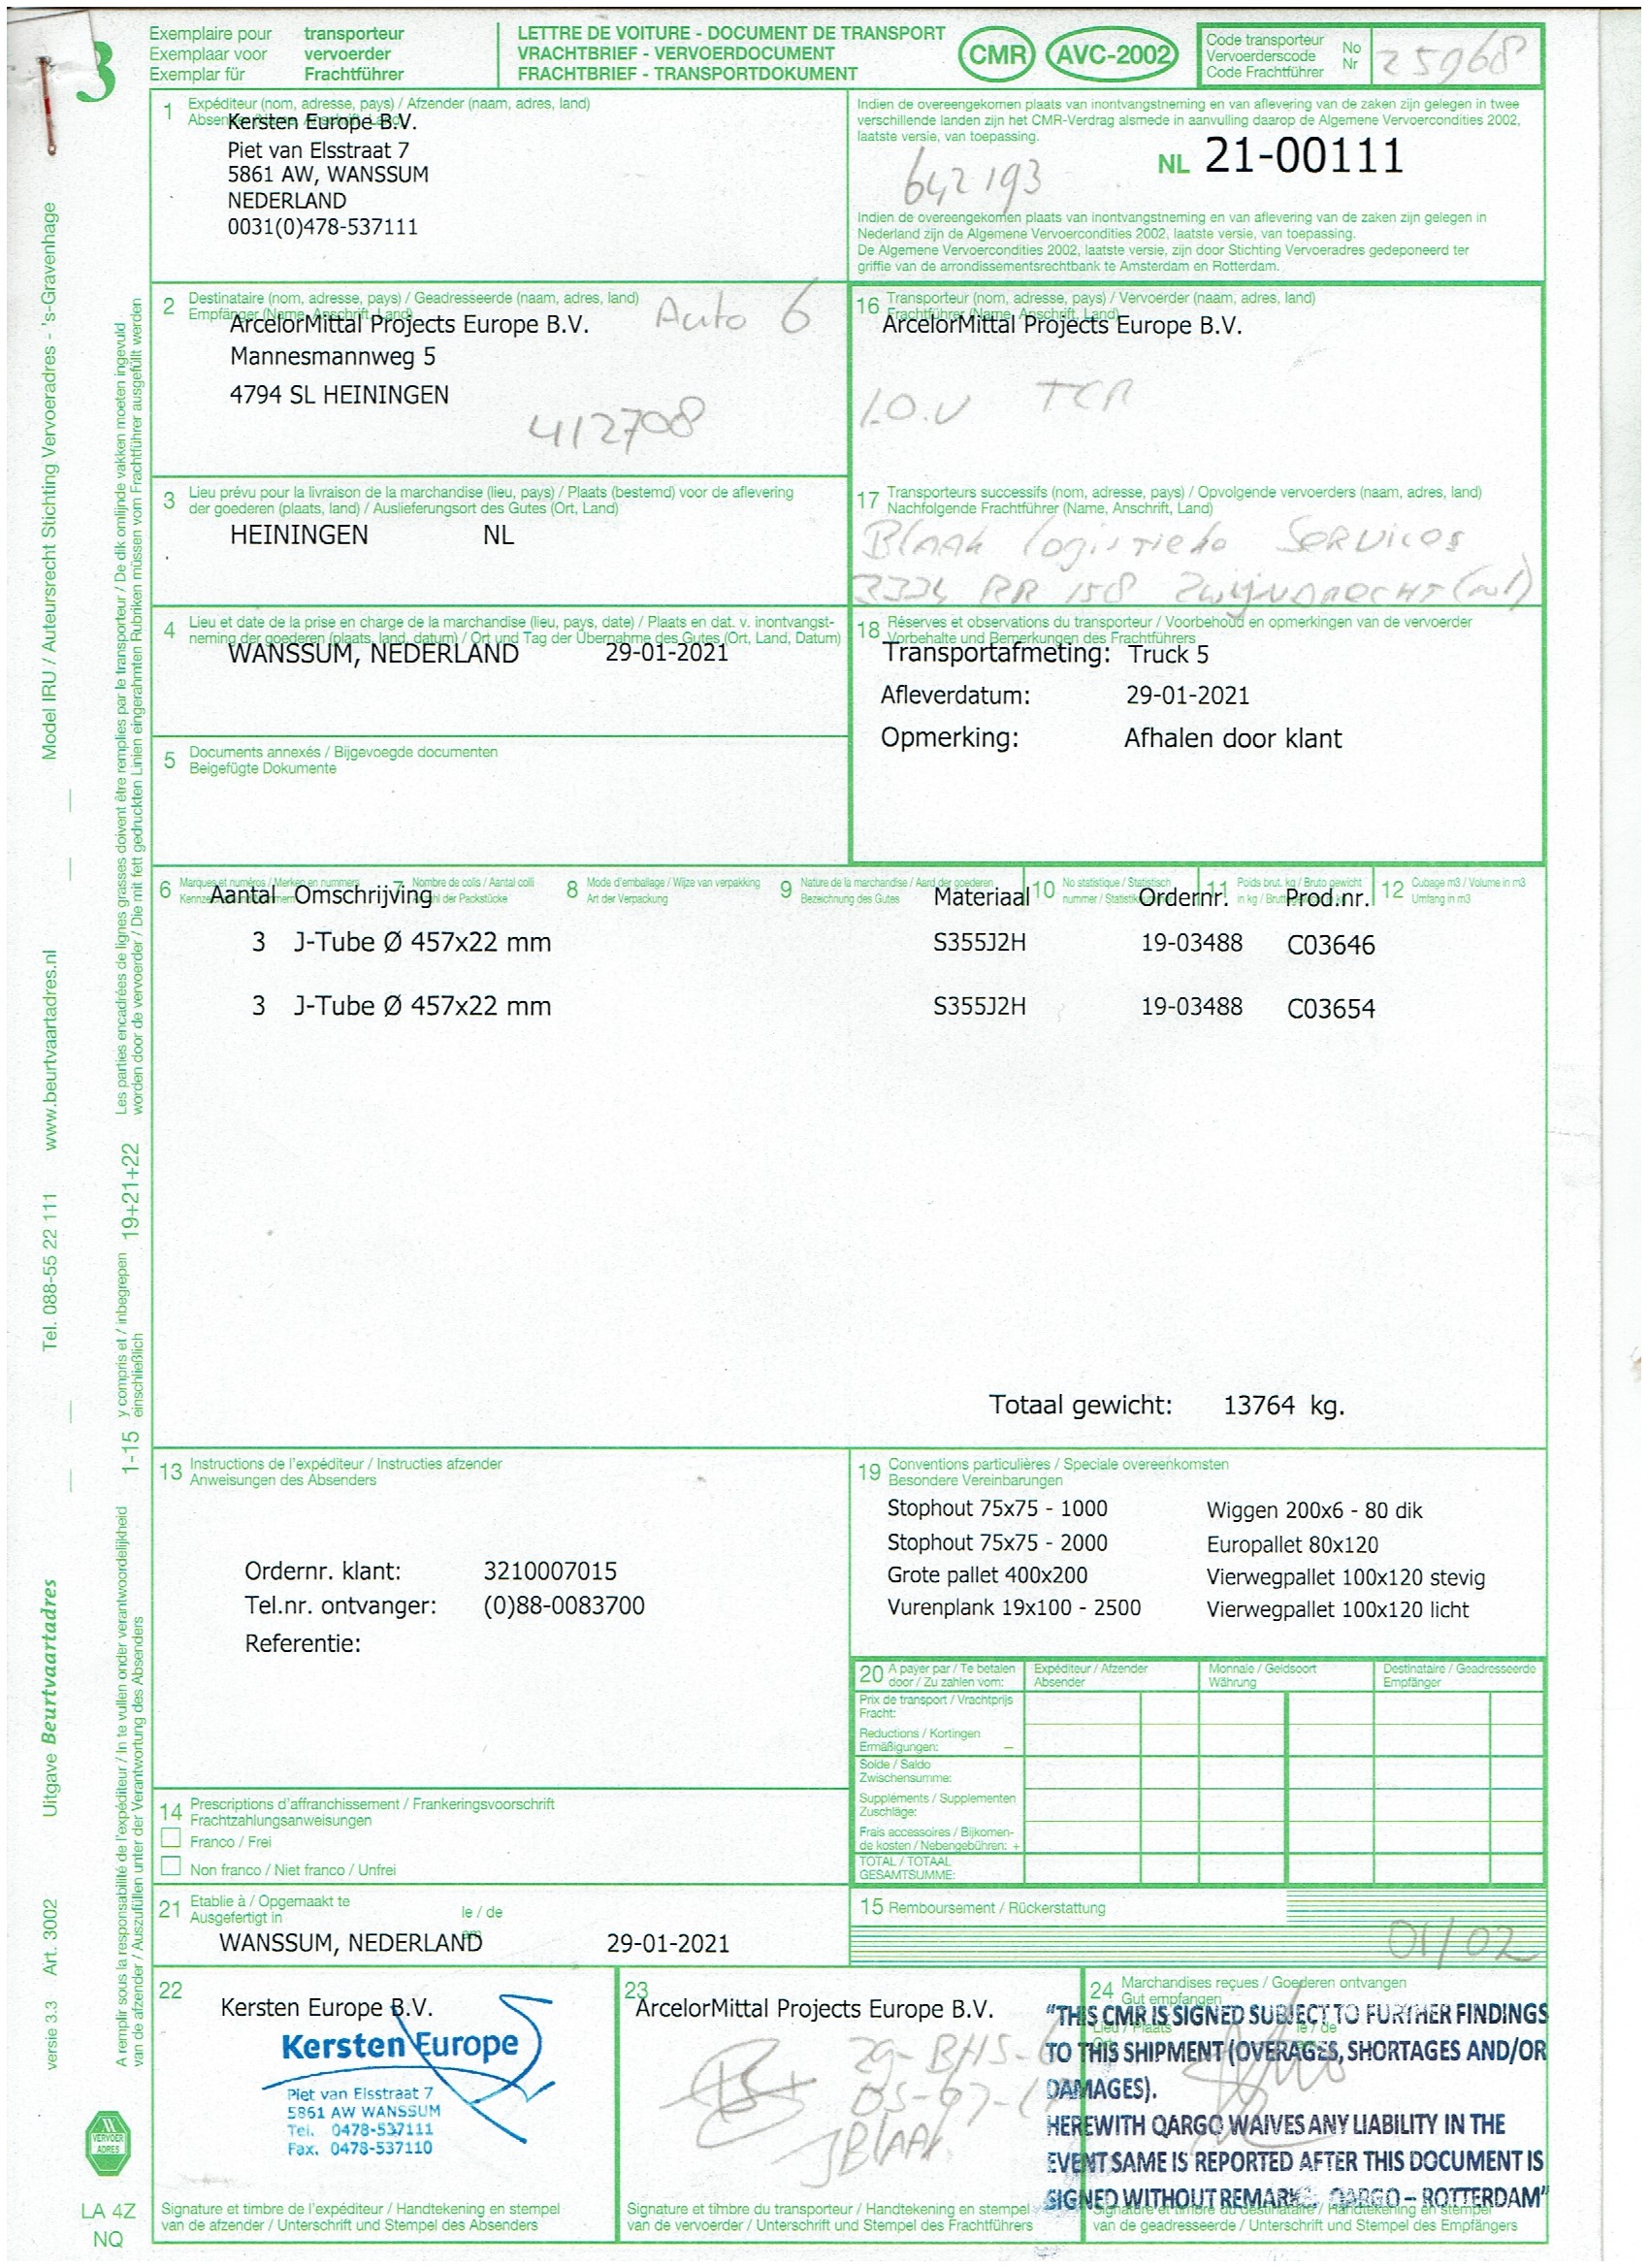 3
Exemplaire pour transporteur
Exemplaar voor vervoerder
Exemplar für Frachtführer
LETTRE DE VOITURE - DOCUMENT DE TRANSPORT
VRACHTBRIEF - VERVOERDOCUMENT
FRACHTBRIEF - TRANSPORTDOKUMENT
CMR AVC-2002
Code transporteur
Vervoerderscode
Code Frachtführer
No
Nr
25968
1 Expéditeur (nom, adresse, pays) / Afzender (naam, adres, land)
Kersten Europe B.V.
Piet van Elsstraat 7
5861 AW, WANSSUM
NEDERLAND
0031(0)478-537111
Indien de overeengekomen plaats van inontvangstneming en van aflevering van de zaken zijn gelegen in twee
verschillende landen zijn het CMR-Verdrag alsmede in aanvulling daarop de Algemene Vervoercondities 2002,
laatste versie, van toepassing.
NL 21-00111
642193
Indien de overeengekomen plaats van inontvangstneming en van aflevering van de zaken zijn gelegen in
Nederland zijn de Algemene Vervoercondities 2002, laatste versie, van toepassing.
De Algemene Vervoercondities 2002, laatste versie, zijn door Stichting Vervoeradres gedeponeerd ter
griffie van de arrondissementsrechtbank te Amsterdam en Rotterdam.
2 Destinataire (nom, adresse, pays) / Geadresseerde (naam, adres, land)
Empfänger (Name, Anschrift, Land)
Auto 6
ArcelorMittal Projects Europe B.V.
Mannesmannweg 5
4794 SL HEININGEN
412708
16 Transporteur (nom, adresse, pays) / Vervoerder (naam, adres, land)
Frachtführer (Name, Anschrift, Land)
ArcelorMittal Projects Europe B.V.
I.O.V TCR
3 Lieu prévu pour la livraison de la marchandise (lieu, pays) / Plaats (bestemd) voor de aflevering
der goederen (plaats, land) / Auslieferungsort des Gutes (Ort, Land)
HEININGEN NL
17 Transporteurs successifs (nom, adresse, pays) / Opvolgende vervoerders (naam, adres, land)
Nachfolgende Frachtführer (Name, Anschrift, Land)
Blaak logistieke Services
RR 158 Zwijndrecht (nl)
4 Lieu et date de la prise en charge de la marchandise (lieu, pays, date) / Plaats en dat. v. inontvangst-
neming der goederen (plaats, land, datum) / Ort und Tag der Übernahme des Gutes (Ort, Land, Datum)
WANSSUM, NEDERLAND 29-01-2021
18 Réserves et observations du transporteur / Voorbehoud en opmerkingen van de vervoerder
Vorbehalte und Bemerkungen des Frachtführers
Transportafmeting: Truck 5
Afleverdatum: 29-01-2021
Opmerking: Afhalen door klant
5 Documents annexés / Bijgevoegde documenten
Beigefügte Dokumente
6 Marques et numéros / Merken en nummers 7 Nombre de colis / Aantal colli 8 Mode d'emballage / Wijze van verpakking 9 Nature de la marchandise / Aard der goederen 10 No statistique / Statistisch 11 Poids brut. kg / Bruto gewicht 12 Cubage m3 / Volume in m3
Art der Verpackung Bezeichnung des Gutes Umfang in m3
Aantal Omschrijving Materiaal Ordernr. Prod.nr.
3 J-Tube Ø 457x22 mm S355J2H 19-03488 C03646
3 J-Tube Ø 457x22 mm S355J2H 19-03488 C03654
Totaal gewicht: 13764 kg.
13 Instructions de l'expéditeur / Instructies afzender
Anweisungen des Absenders
Ordernr. klant: 3210007015
Tel.nr. ontvanger: (0)88-0083700
Referentie:
19 Conventions particulières / Speciale overeenkomsten
Besondere Vereinbarungen
Stophout 75x75 - 1000 Wiggen 200x6 - 80 dik
Stophout 75x75 - 2000 Europallet 80x120
Grote pallet 400x200 Vierwegpallet 100x120 stevig
Vurenplank 19x100 - 2500 Vierwegpallet 100x120 licht
20 A payer par / Te betalen
door / Zu zahlen vom:
Expéditeur / Afzender
Absender
Monnaie / Geldsoort
Währung
Destinataire / Geadresseerde
Empfänger
Prix de transport / Vrachtprijs
Fracht:
Reductions / Kortingen
Ermäßigungen: −
Solde / Saldo
Zwischensumme:
Suppléments / Supplementen
Zuschläge:
Frais accessoires / Bijkomen-
de kosten / Nebengebühren: +
TOTAL / TOTAAL
GESAMTSUMME:
14 Prescriptions d'affranchissement / Frankeringsvoorschrift
Frachtzahlungsanweisungen
Franco / Frei
Non franco / Niet franco / Unfrei
21 Etablie à / Opgemaakt te
Ausgefertigt in
le / de
am
WANSSUM, NEDERLAND 29-01-2021
15 Remboursement / Rückerstattung
01/02
22
Kersten Europe B.V.
Kersten Europe
Piet van Elsstraat 7
5861 AW WANSSUM
Tel. 0478-537111
Fax. 0478-537110
Signature et timbre de l'expéditeur / Handtekening en stempel
van de afzender / Unterschrift und Stempel des Absenders
23
ArcelorMittal Projects Europe B.V.
29-BHS-6
Blaak
Signature et timbre du transporteur / Handtekening en stempel
van de vervoerder / Unterschrift und Stempel des Frachtführers
24 Marchandises reçues / Goederen ontvangen
Gut empfangen
Lieu / Plaats le / de
"THIS CMR IS SIGNED SUBJECT TO FURTHER FINDINGS
TO THIS SHIPMENT (OVERAGES, SHORTAGES AND/OR
DAMAGES).
HEREWITH QARGO WAIVES ANY LIABILITY IN THE
EVENT SAME IS REPORTED AFTER THIS DOCUMENT IS
SIGNED WITHOUT REMARKS. QARGO – ROTTERDAM"
Signature et timbre du destinataire / Handtekening en stempel
van de geadresseerde / Unterschrift und Stempel des Empfängers
Model IRU / Auteursrecht Stichting Vervoeradres - 's-Gravenhage
www.beurtvaartadres.nl
Tel. 088-55 22 111
Uitgave Beurtvaartadres
Art. 3002
versie 3.3
Les parties encadrées de lignes grasses doivent être remplies par le transporteur / De dik omlijnde vakken moeten ingevuld
worden door de vervoerder / Die mit fett gedruckten Linien eingerahmten Rubriken müssen vom Frachtführer ausgefüllt werden
19+21+22
y compris et / inbegrepen
einschließlich
1-15
A remplir sous la responsabilité de l'expéditeur / In te vullen onder verantwoordelijkheid
van de afzender / Auszufüllen unter der Verantwortung des Absenders
VERVOER
ADRES
LA 4Z
NQ